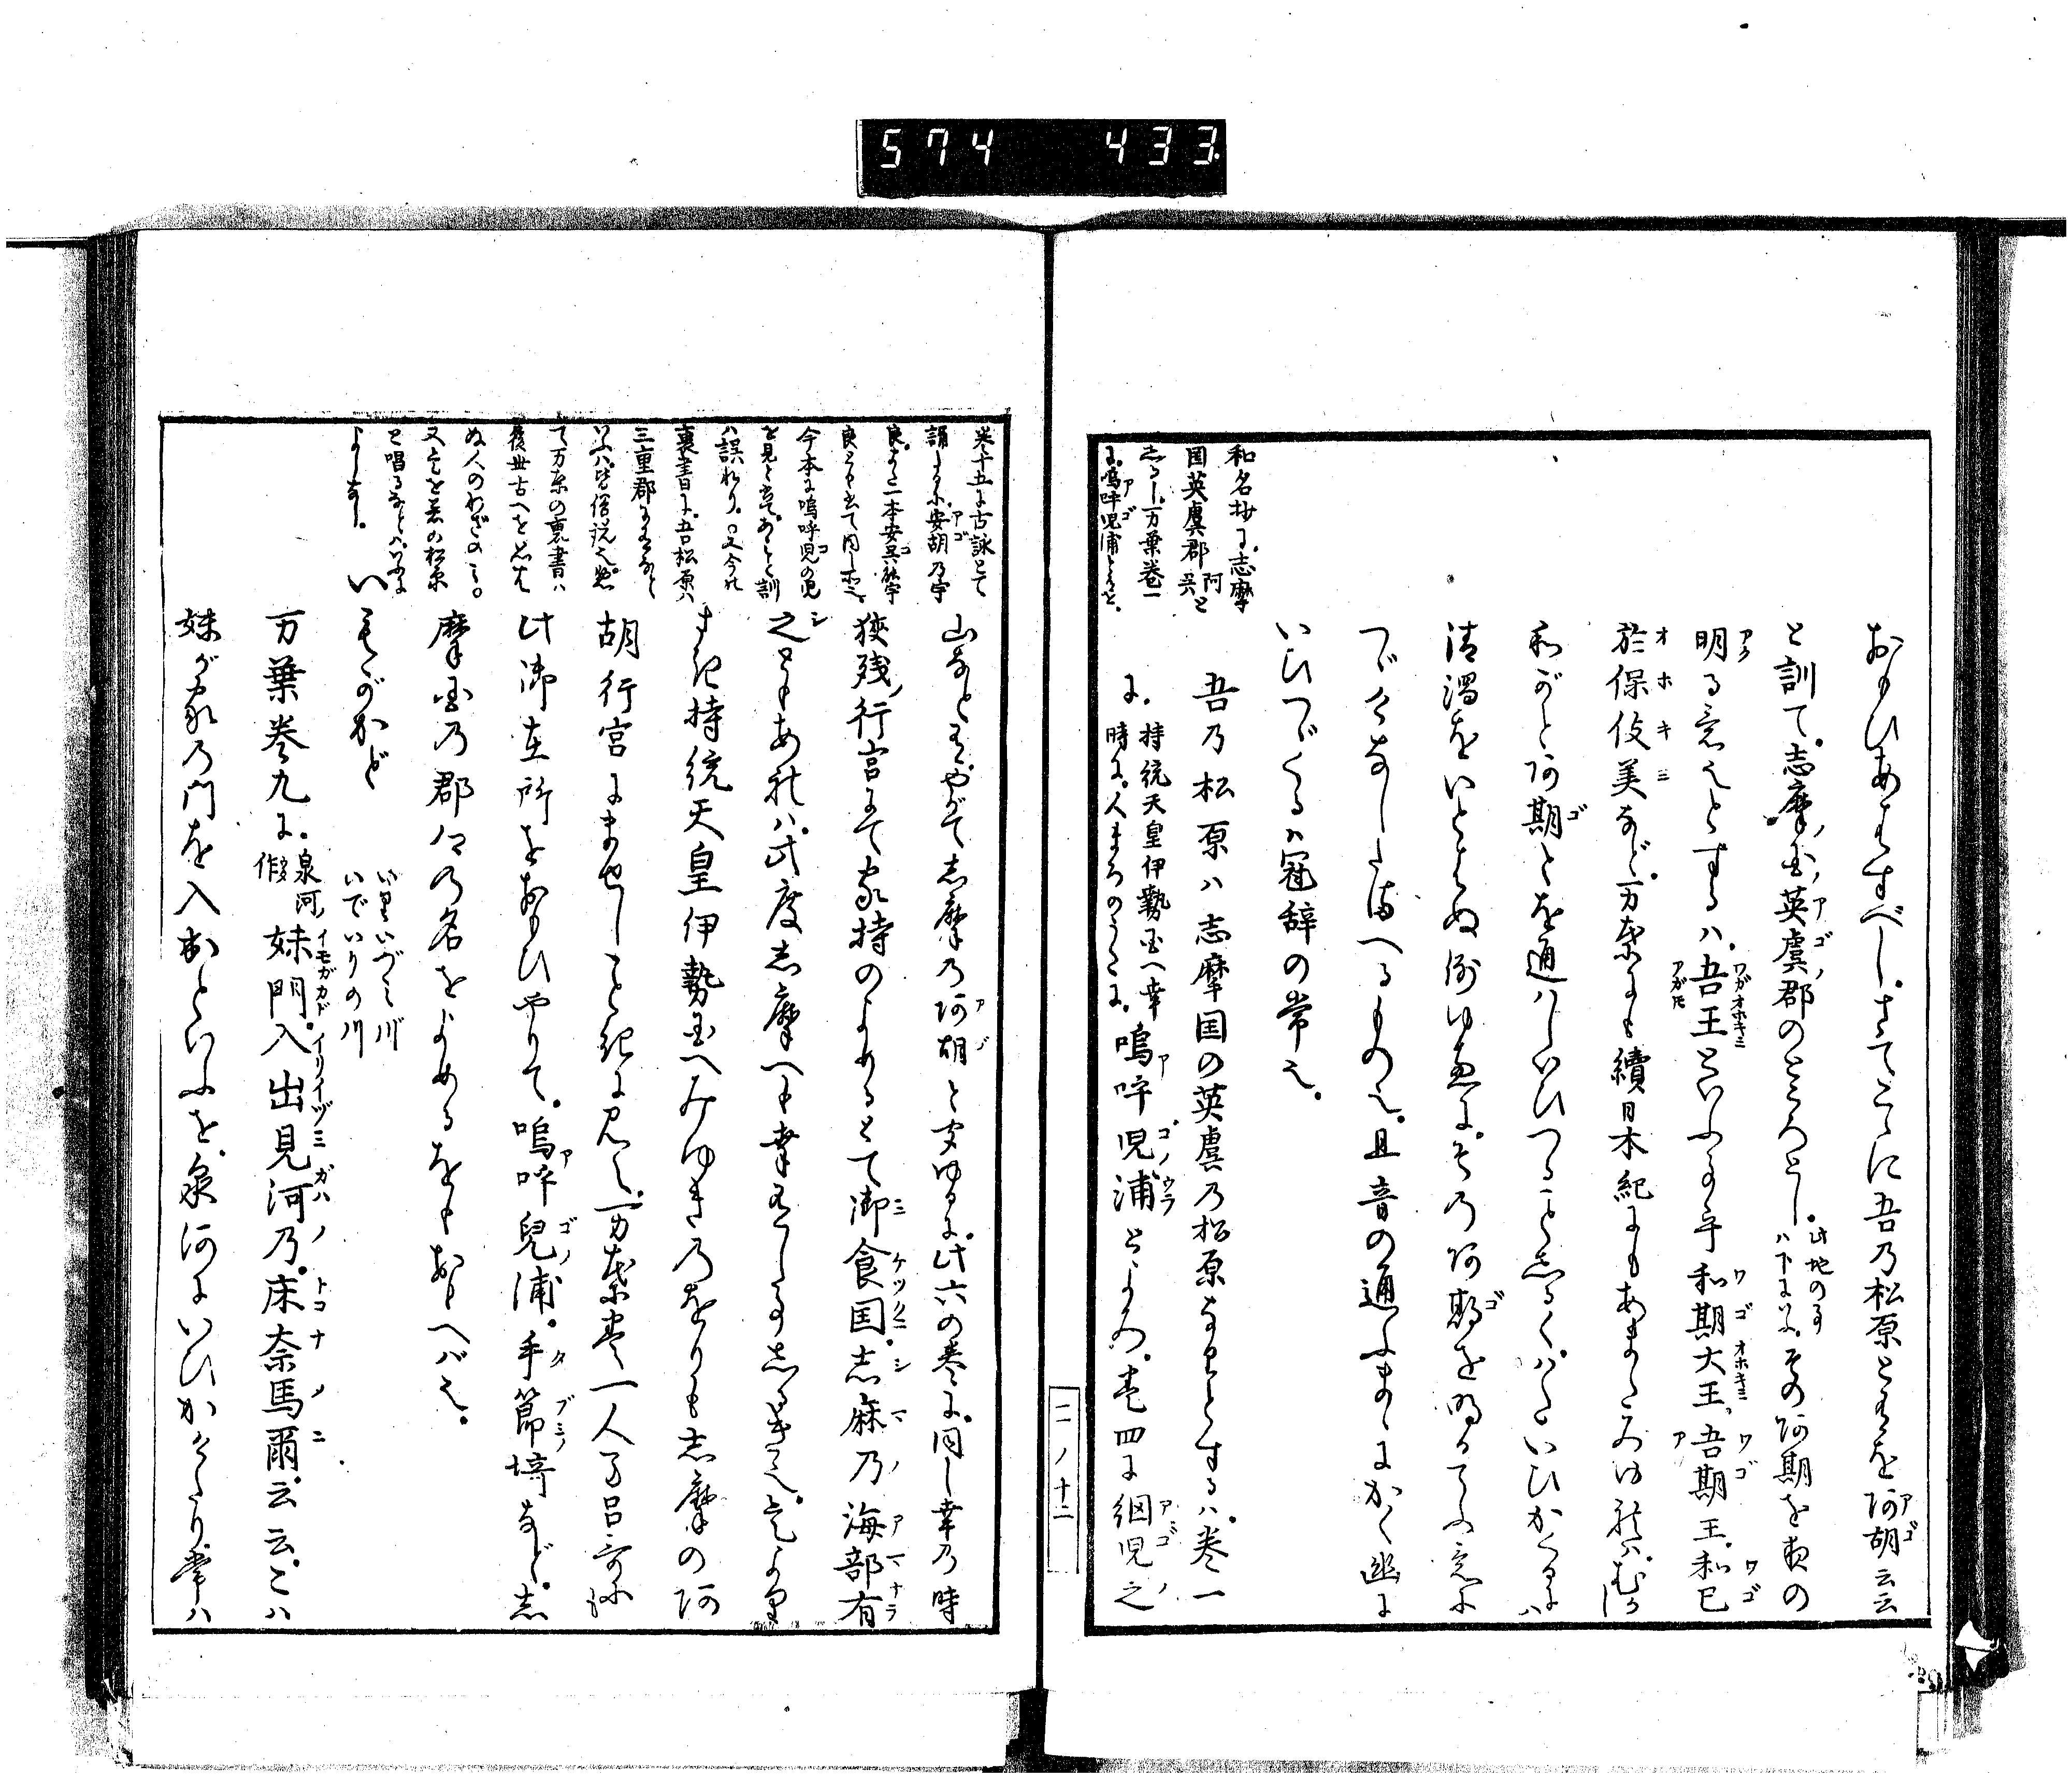 574 433
おもひあはすべし。さてこゝに吾乃松原とあるを阿胡云云
と訓て。志摩ノ国ノ英虞ノ郡のところとし。此地の事ハ下にいふ。その阿期を夜の
明る意也とするハ。吾王といふ事乎和期大王。吾期王。和己
於保伎美など。万葉にも續日本紀にもあまたみゆれバ。
和がと阿期とを通ハしいひつることしるく。
清濁をいとはぬ例ゆゑに。その阿期を明るてふ意に
つゞけなしたまへるもの也。且音の通ふまゝにかく遙に
いひつゞくるハ冠辞の常也。
和名抄に。志摩
国英虞郡 阿呉と
しるし。万葉巻一
に。嗚呼児浦とあるを。
吾乃松原ハ志摩国の英虞乃松原なりとするハ。巻一
に。持統天皇伊勢国へ幸時に。人まろのうたに。嗚呼児浦とよみ。巻四に網児之
二ノ十二
巻十五に古詠とて
誦うたに安胡乃宇
良。また一本安呉能宇
良とも出て同し所也。
今本に嗚呼児の児
を見と書て。あみと訓
ハ誤れり。又今の
裏書に。吾松原ハ
三重郡にあるなと
いふハ皆俗説也。惣
て万葉の裏書ハ
後世古へをしらぬ
人のわざのミ。
又こを吾の松原
と唱るなとハいふに
よしなし。
山などあるやがて志摩乃阿胡と聞ゆるに。此六の巻に。同し幸乃時
狭残ノ行宮にて家持のよめるとて御食国。志麻乃海部有
之ともあれハ。此度志摩へも幸ありし事しるき也。こより
さき持統天皇伊勢国へみゆき乃をりも志摩の阿
胡行宮にませしこと紀に見え。万葉巻一人万呂哥に
此御在所をおもひやりて。嗚呼兒浦。手節埼など。志
摩国乃郡々の名をよめるをもおもへバ也。
いもがかど いりいづみ川 いでいりの川
万葉巻九に。泉河ノ作 妹門。入出見河乃。床奈馬爾。云云。こハ
妹が家乃門を入出といふを。泉河にいひかけたり。常ハ